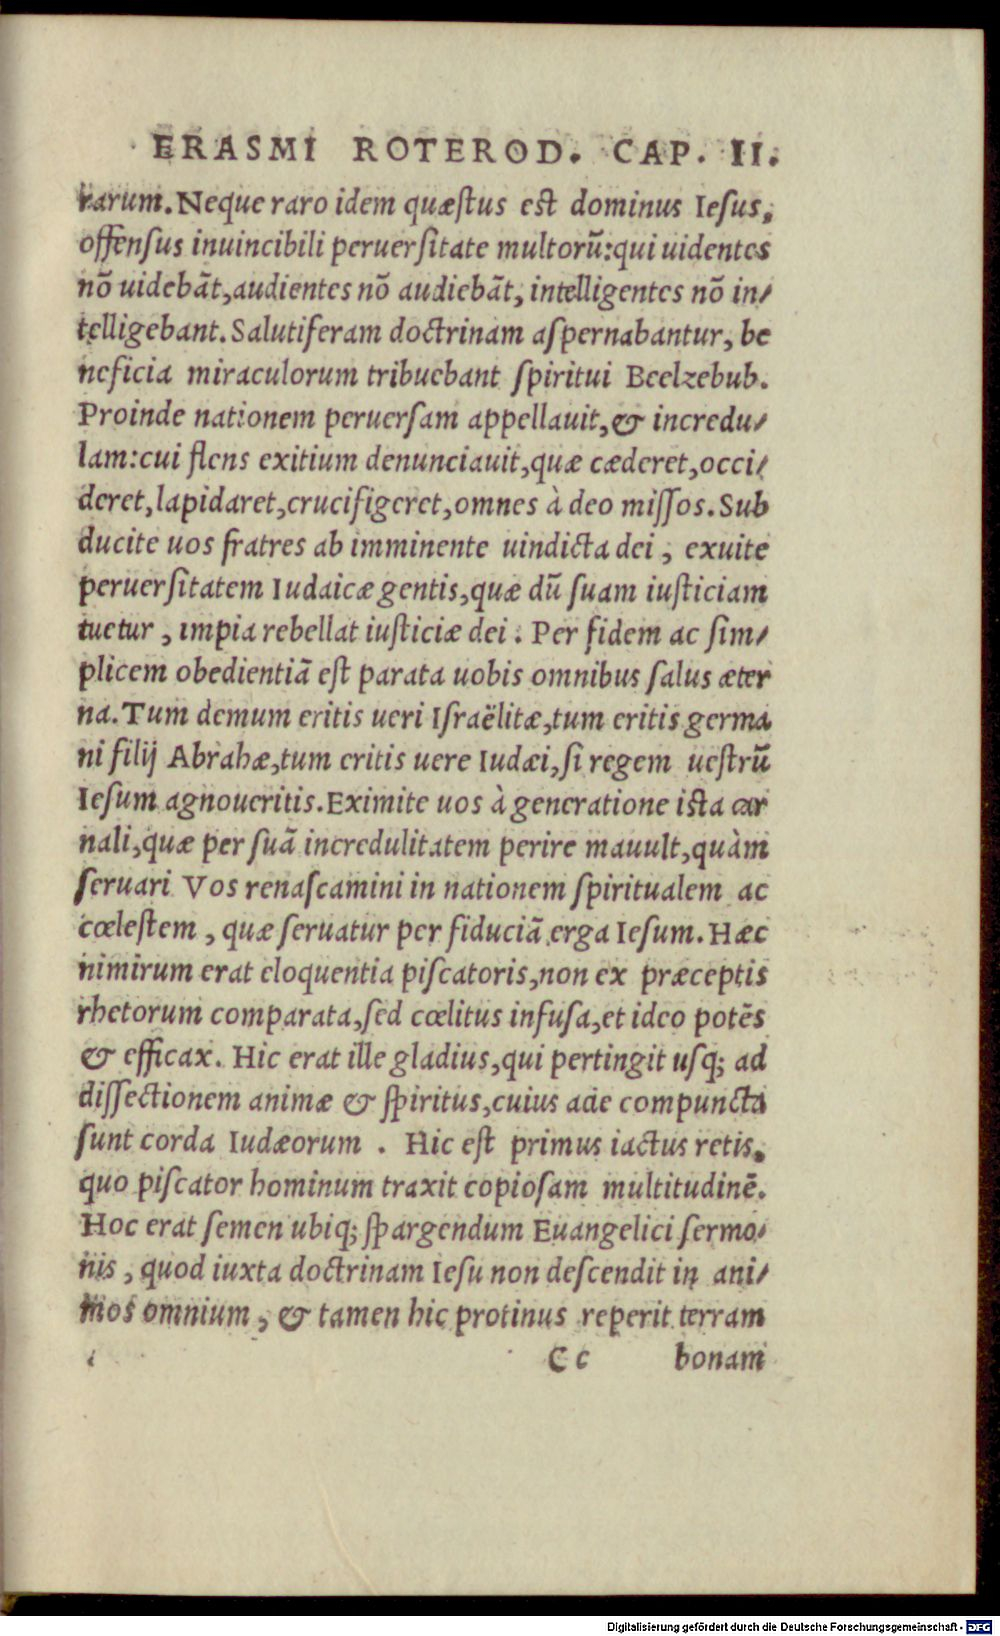 ERASMI ROTEROD. CAP. II.
rarum. Neque raro idem quæstus est dominus Iesus,
offensus inuincibili peruersitate multorũ: qui uidentes
nõ uidebãt, audientes nõ audiebãt, intelligentes nõ in/
telligebant. Salutiferam doctrinam aspernabantur, be
neficia miraculorum tribuebant spiritui Beelzebub.
Proinde nationem peruersam appellauit, & incredu/
lam: cui flens exitium denunciauit, quæ cæderet, occi/
deret, lapidaret, crucifigeret, omnes à deo missos. Sub
ducite uos fratres ab imminente uindicta dei, exuite
peruersitatem Iudaicæ gentis, quæ dũ suam iusticiam
tuetur, impia rebellat iusticiæ dei. Per fidem ac sim/
plicem obedientiã est parata uobis omnibus salus æter
na. Tum demum eritis ueri Israëlitæ, tum eritis germa
ni filij Abrahæ, tum eritis uere Iudæi, si regem uestrũ
Iesum agnoueritis. Eximite uos à generatione ista car
nali, quæ per suã incredulitatem perire mauult, quàm
seruari Vos renascamini in nationem spiritualem ac
cœlestem, quæ seruatur per fiduciã erga Iesum. Hæc
nimirum erat eloquentia piscatoris, non ex præceptis
rhetorum comparata, sed cœlitus infusa, et ideo potẽs
& efficax. Hic erat ille gladius, qui pertingit usq; ad
dissectionem animæ & spiritus, cuius acie compuncta
sunt corda Iudæorum. Hic est primus iactus retis,
quo piscator hominum traxit copiosam multitudinẽ.
Hoc erat semen ubiq; spargendum Euangelici sermo/
nis, quod iuxta doctrinam Iesu non descendit in ani/
mos omnium, & tamen hic protinus reperit terram
Cc bonam
Digitalisierung gefördert durch die Deutsche Forschungsgemeinschaft - DFG